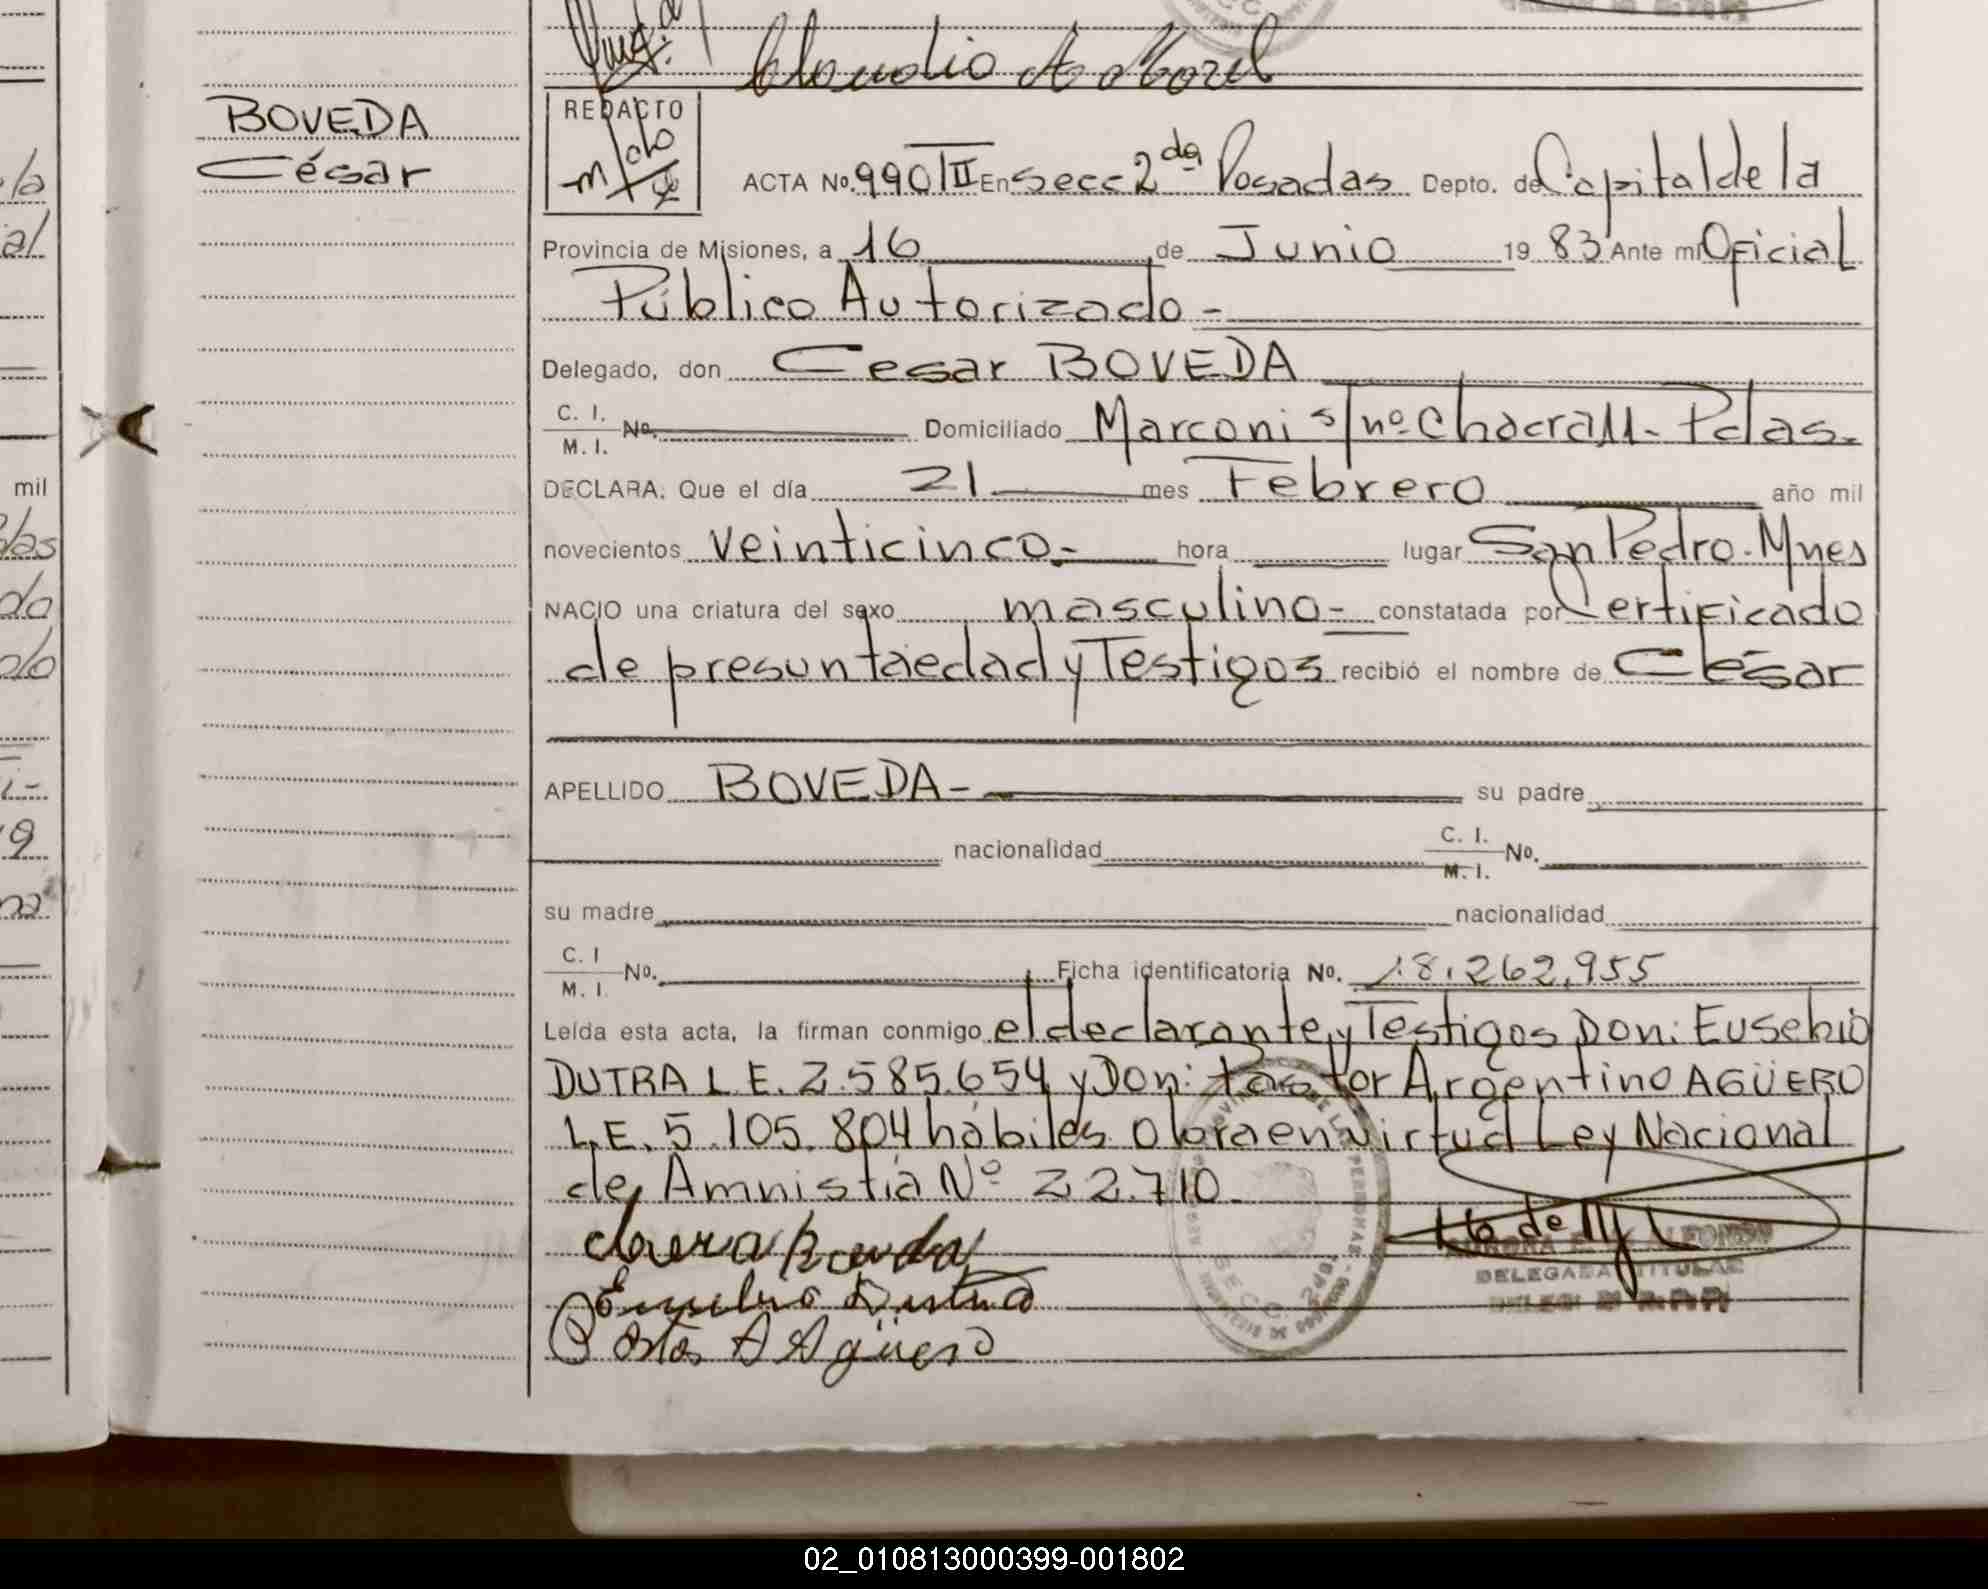 Claudio A Morel
BOVEDA
César
REDACTO
ACTA No. 990 II En Secc 2da Posadas Depto. de Capital de la
Provincia de Misiones, a 16 de Junio 1983 Ante mi Oficial
Público Autorizado -
Delegado, don Cesar BOVEDA
C. I.
M. I. No. Domiciliado Marconi s/nº Chacra 11 - Pdas.
DECLARA: Que el día 21 mes Febrero año mil
novecientos veinticinco - hora lugar San Pedro. Mnes
NACIO una criatura del sexo masculino - constatada por Certificado
de presunta edad y Testigos recibió el nombre de César
APELLIDO BOVEDA - su padre
nacionalidad C. I.
M. I. No.
su madre nacionalidad
C. I
M. I. No. Ficha identificatoria No. 18.262.955
Leída esta acta, la firman conmigo el declarante y Testigos Don: Eusebio
DUTRA L.E. 2.585.654 y Don: Pastor Argentino AGÜERO
L.E. 5.105.804 hábiles. Obra en virtud Ley Nacional
de Amnistía Nº 22.710.
DELEGADA TITULAR
Eusebio Dutra
Pastor A Agüero
mil
02_010813000399-001802